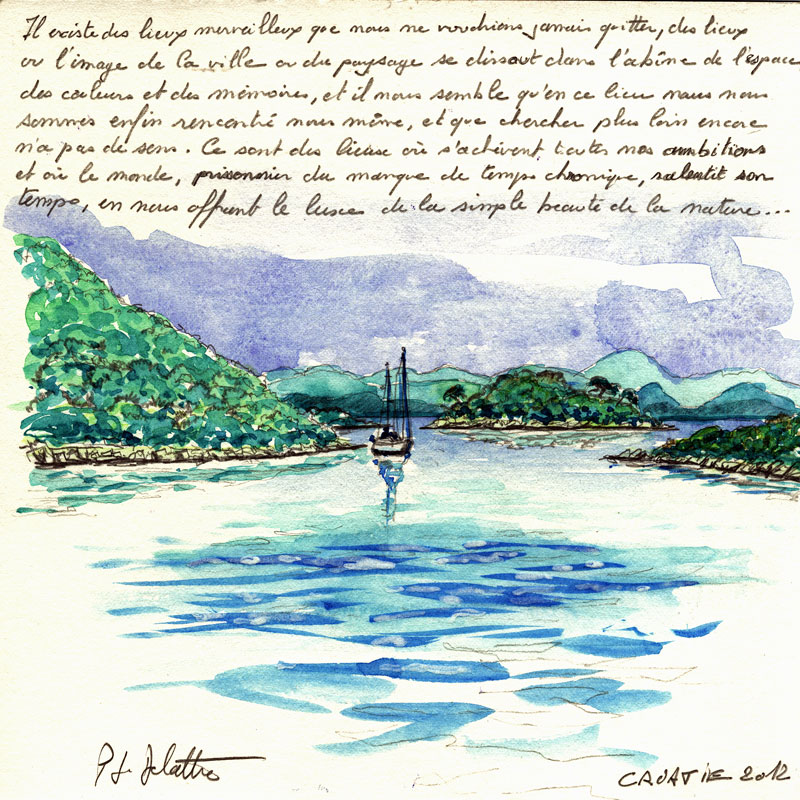 Il existe des lieux merveilleux que nous ne voudrions jamais quitter, des lieux
où l'image de la ville ou du paysage se dissout dans l'abîme de l'espace
des couleurs et des mémoires, et il nous semble qu'en ce lieu nous nous
sommes enfin rencontré nous même, et que chercher plus loin encore
n'a pas de sens. Ce sont des lieux où s'achèvent toutes nos ambitions
et où le monde, prisonnier du manque de temps chronique, ralentit son
temps, en nous offrant le luxe de la simple beauté de la nature...
CROATIE 2012